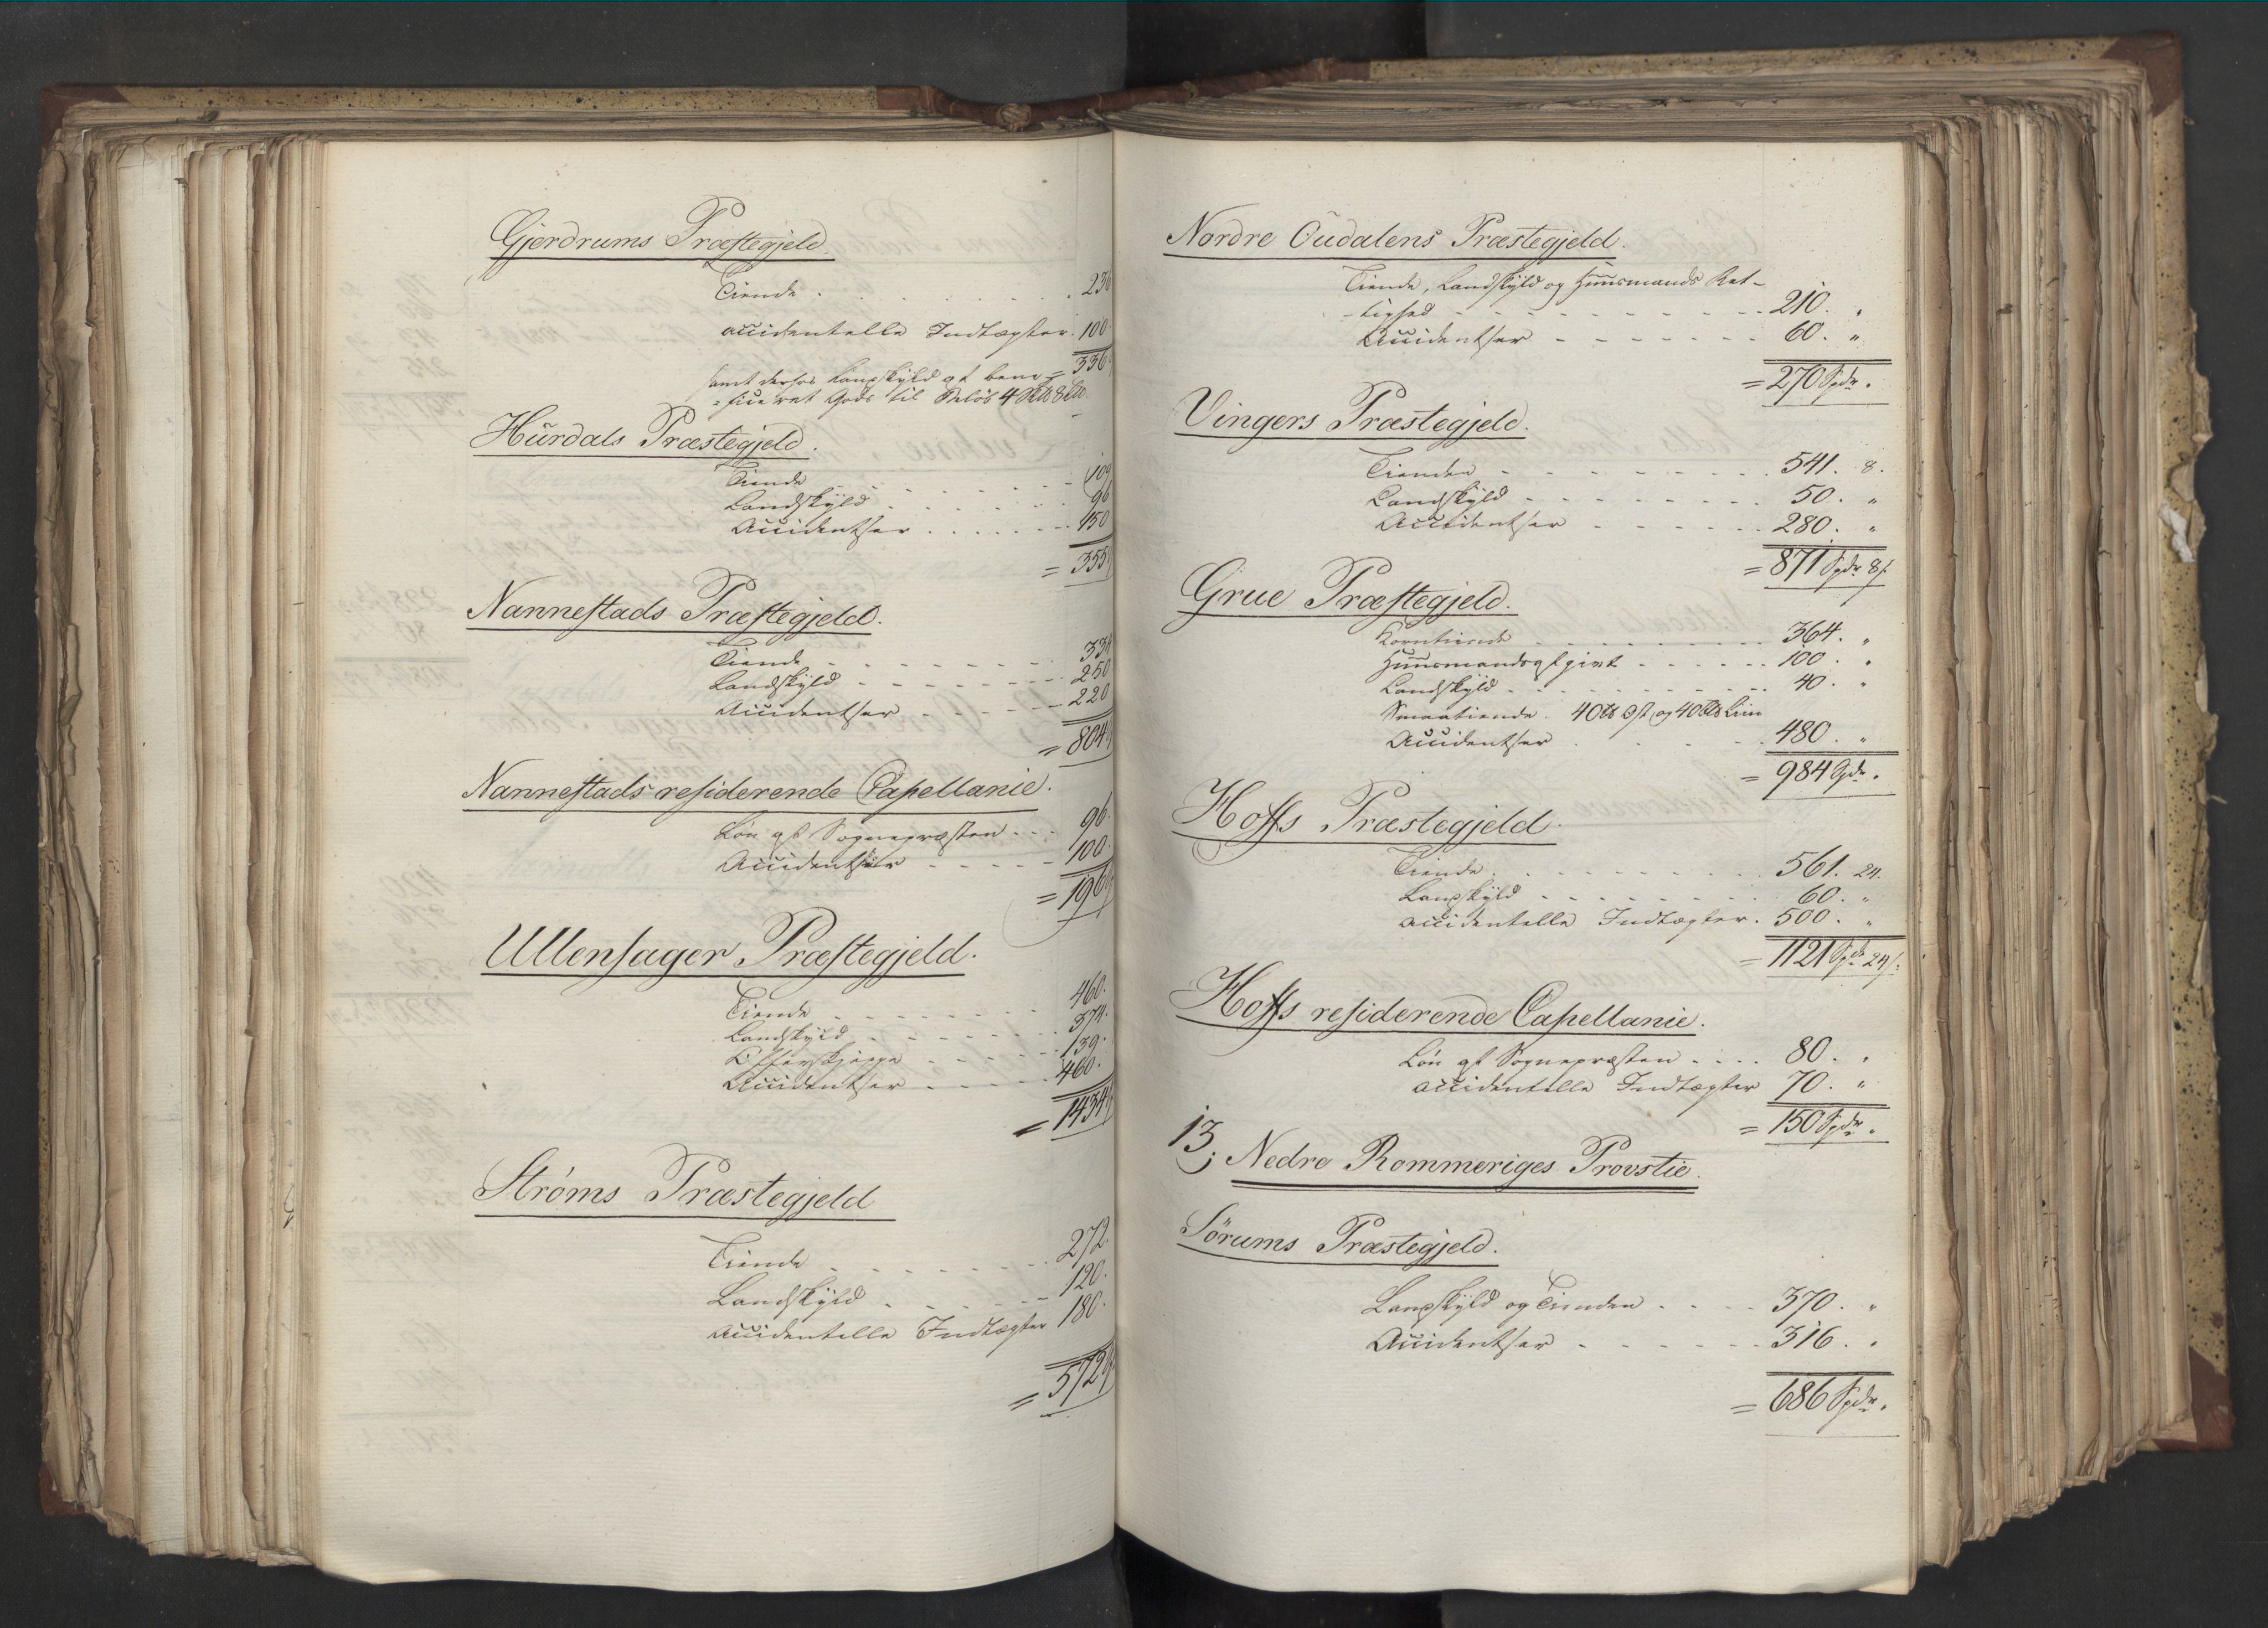 Gjerdrums Præstegjeld.
Tiende . . . . . . . . . 236
accidentelle Indtægter. 100.
= 336
samt derhos Landskyld af bene=
=ficeret Gods til Beløb 4
Hurdals Præstegjeld.
Tiende - - - - - - - 109
Landskyld . . . . . . 96
Accidentser . . . . . - 150
= 355
Nannestads Præstegjeld.
Tiende - - - - - - - - 334
Landskyld - - - - - - - 250
Accidentser - - - - - 220
= 804
Nannestads residerende Capellanie.
Løn af Sognepræsten - - - 96.
Accidentser - - - - - 100.
= 196
Ullensager Præstegjeld.
Tiende - - - - - - - 460.
Landskyld - - - - - - 374.
Offerskjeppe - - - - - 139.
Accidentser - - - - - 460.
= 1434
Strøms Præstegjeld
Tiende - - - - - - - 272.
Landskyld - - - - - - 120.
Accidentelle Indtægter 180.
= 572
Nordre Oudalens Præstegjeld.
Tiende, Landskyld og Huusmands Ret-
-tighed - - - - - - - - - - 210. "
Accidentser - - - - - - - 60. "
= 270 Spdr.
Vingers Præstegjeld.
Tienden - - - - - - - - 541. 8.
Landskyld - - - - - - - - 50. "
Accidentser - - - - - - 280. "
= 871 Spdr 8 s.
Grue Præstegjeld.
Korntiende - - - - - - - - 364. "
Huusmandsafgivt - - - - - - 100. "
Landskyld - - - - - - - - - 40. "
Smaatiende. 40 og 40
Accidentser . . . . . 480. "
= 984 Spdr.
Hoffs Præstegjeld.
Tiende . . . . . . . . . 561. 24.
Landskyld - - - - - - - - 60. "
accidentelle Indtægter. 500. "
= 1121 Spdr 24 s.
Hoffs residerende Capellanie.
Løn af Sognepræsten . . . . 80. "
accidentelle Indtægter 70. "
= 150 Spdr.
13, Nedre Rommeriges Provstie.
Sørums Præstegjeld.
Landskyld og Tienden . - - - 370. "
Accidentser - - - - - - 316. "
= 686 Spdr.